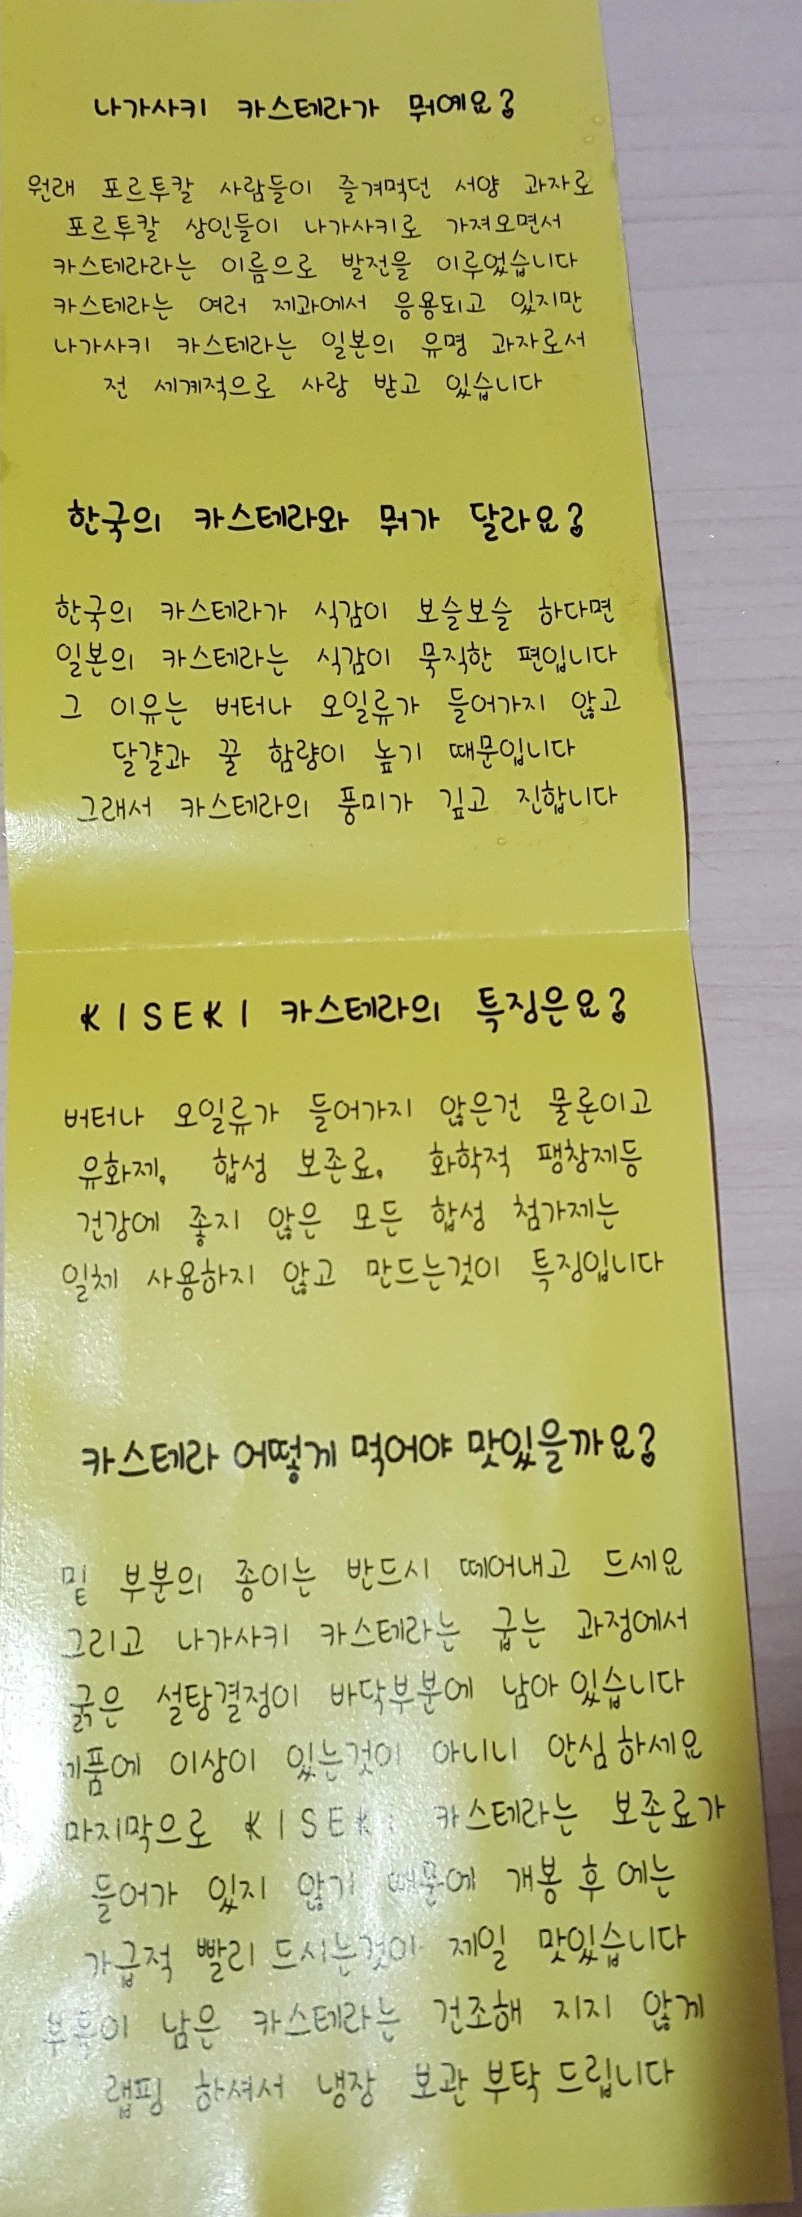 나가사키 카스테라가 뭐예요?
원래 포르투칼 사람들이 즐겨먹던 서양 과자로
포르투칼 상인들이 나가사키로 가져오면서
카스테라라는 이름으로 발전을 이루었습니다
카스테라는 여러 제과에서 응용되고 있지만
나가사키 카스테라는 일본의 유명 과자로서
전 세계적으로 사랑 받고 있습니다
한국의 카스테라와 뭐가 달라요?
한국의 카스테라가 식감이 보슬보슬 하다면
일본의 카스테라는 식감이 묵직한 편입니다
그 이유는 버터나 오일류가 들어가지 않고
달걀과 꿀 함량이 높기 때문입니다
그래서 카스테라의 풍미가 깊고 진합니다
KISEKI 카스테라의 특징은요?
버터나 오일류가 들어가지 않은건 물론이고
유화제, 합성 보존료, 화학적 팽창제등
건강에 좋지 않은 모든 합성 첨가제는
일체 사용하지 않고 만드는것이 특징입니다
카스테라 어떻게 먹어야 맛있을까요?
밑 부분의 종이는 반드시 떼어내고 드세요
그리고 나가사키 카스테라는 굽는 과정에서
굵은 설탕결정이 바닥부분에 남아 있습니다
제품에 이상이 있는것이 아니니 안심하세요
마지막으로 KISEKI 카스테라는 보존료가
들어가 있지 않기 때문에 개봉 후 에는
가급적 빨리 드시는것이 제일 맛있습니다
남은 카스테라는 건조해 지지 않게
랩핑 하셔서 냉장 보관 부탁 드립니다